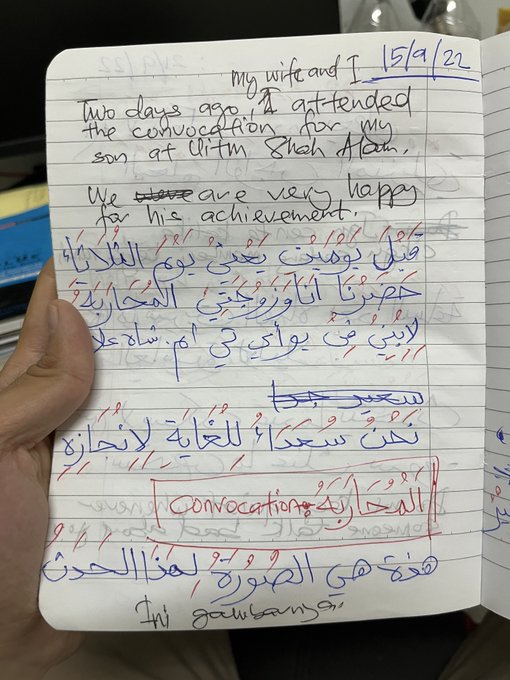 15/9/22
my wife and I
Two days ago, I attended
the convocation for my
son at Uitm Shah Alam.
We are very happy
for his achievement.
قَبْلَ يَوْمَيْنِ يَعْنِي يَوْمَ الثُّلَاثَاءِ
حَضَرْنَا أَنَا وَزَوْجَتِي الْمُحَارَبَةَ
لِابْنِي فِي يو أي تي ام. شاه علا
سعير جدا
نَحْنُ سُعَدَاءُ لِلْغَايَةِ لِانْحَازِهِ
convocation: الْمُحَارَبَةُ
هَذِهِ هِيَ الصُّورَةُ لِهَذَا الْحَدَثِ
Ini gambarnya.